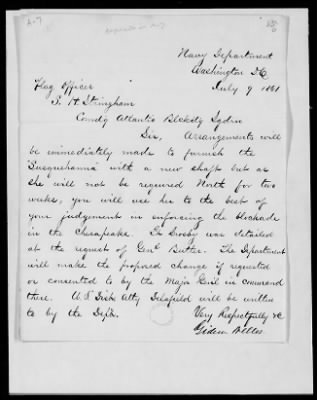 A-7
Navy Department
Washington DC
July 9 1861
Flag Officer
S. H. Stringham
Comdg Atlantic Blckdg Sqdrn
Sir, Arrangements will
be immediately made to furnish the
"Susquehanna" with a new shaft but as
she will not be required North for two
weeks, you will use her to the best of
your judgement in enforcing the blockade
in the Chesapeake. Lt Crosby was detailed
at the request of Genl Butler. The Department
will make the proposed change if requested
or consented to by the Major Genl in command
there. U.S Dist Atty Delafield will be written
to by the Dept.
Very Respectfully &c
Gideon Welles